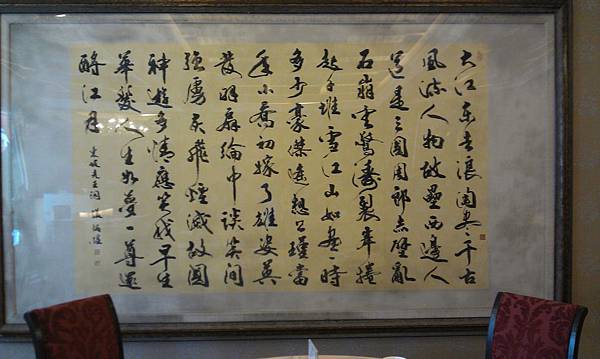 大江东去浪淘尽千古
風流人物故壘西邊人
道是三國周郎赤壁亂
石崩雲驚濤裂岸捲
起千堆雪江山如畫一時
多少豪傑遙想公瑾當
年小喬初嫁了雄姿英
發羽扇綸巾談笑間
强虜灰飛煙滅故國
神遊多情應笑我早生
華髮人生如夢一尊還
酹江月